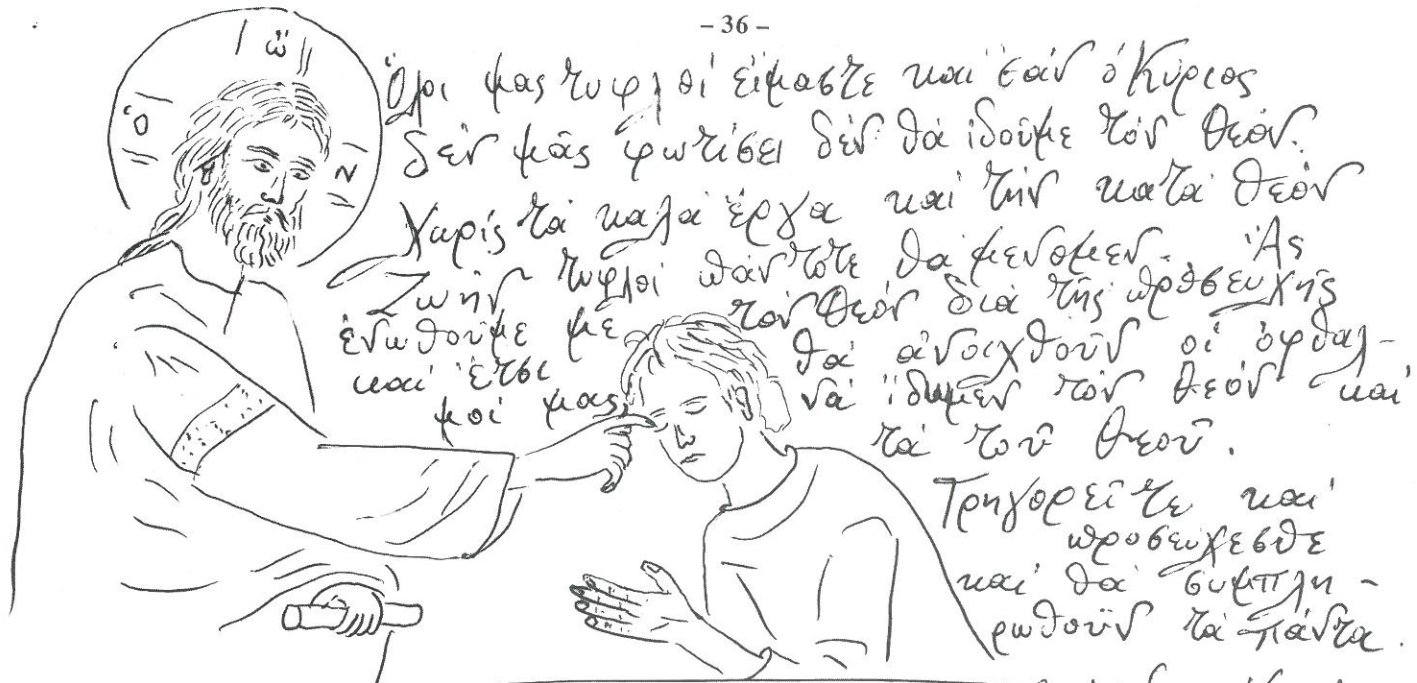 – 36 –
ὁ ὤ Ν
Ὅλοι μας τυφλοί εἴμαστε καί ἐάν ὁ Κύριος
δέν μᾶς φωτίσει δέν θά ἰδοῦμε τόν Θεόν.
Χωρίς τά καλά ἔργα καί τήν κατά Θεόν
Ζωήν τυφλοί πάντοτε θά μένομεν. Ἄς
ἑνωθοῦμε μέ τόν Θεόν διά τῆς προσευχῆς
καί ἔτσι θά ἀνοιχθοῦν οἱ ὀφθαλ-
μοί μας νά ἴδωμεν τόν Θεόν καί
τά τοῦ Θεοῦ.
Γρηγορεῖτε καί
προσεύχεσθε
καί θά συμπλη-
ρωθοῦν τά πάντα.